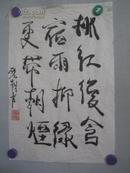 桃红復含
宿雨柳绿
更带朝煙